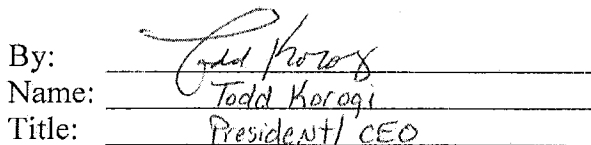 By: Todd Korogi
Name: Todd Korogi
Title: President/ CEO